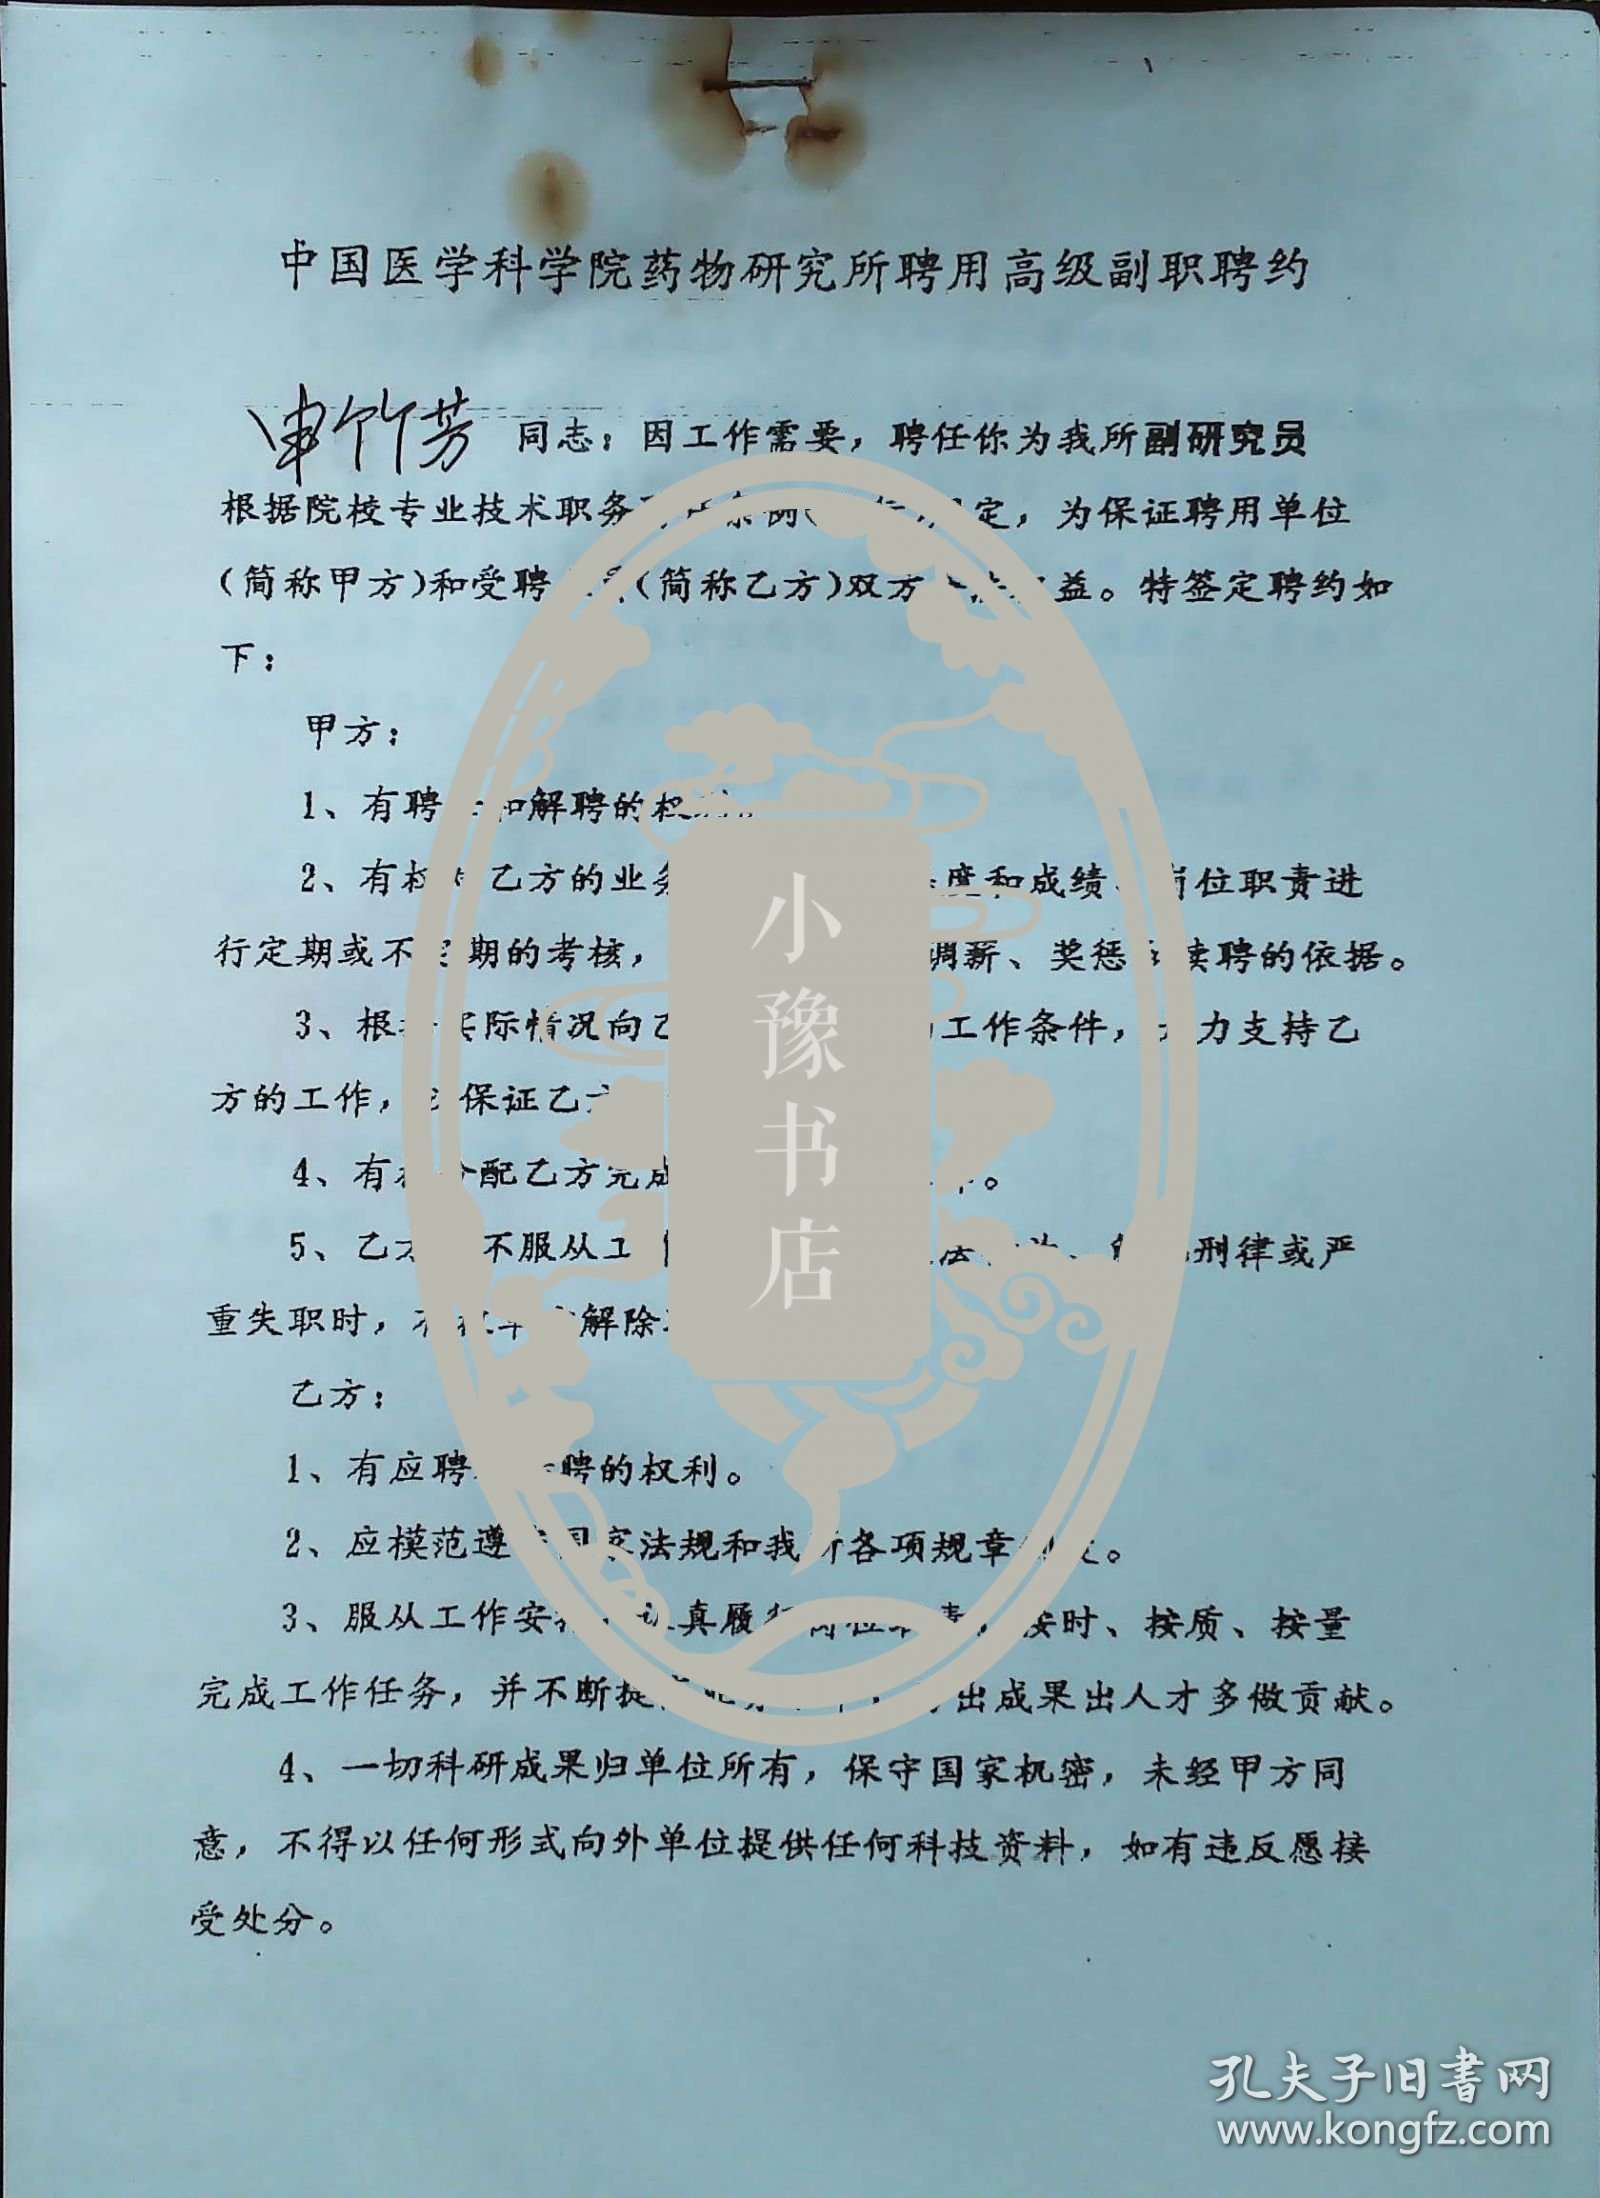 中国医学科学院药物研究所聘用高级副职聘约
申竹芳 同志：因工作需要，聘任你为我所副研究员
根据院校专业技术职务 定，为保证聘用单位
（简称甲方）和受聘 （简称乙方）双方 益。特签定聘约如
下：
甲方：
1、有聘 和解聘的权
2、有权 乙方的业务 度和成绩 岗位职责进
行定期或不定期的考核， 调薪、奖惩 续聘的依据。
3、根据实际情况向乙 工作条件，大力支持乙
方的工作， 保证乙方
4、有权分配乙方完成 。
5、乙方 不服从工 法 刑律或严
重失职时，有权单 解除
乙方：
1、有应聘 聘的权利。
2、应模范遵 国家法规和我所各项规章制度。
3、服从工作安排，认真履行岗位职责，按时、按质、按量
完成工作任务，并不断提 出成果出人才多做贡献。
4、一切科研成果归单位所有，保守国家机密，未经甲方同
意，不得以任何形式向外单位提供任何科技资料，如有违反愿接
受处分。
小豫书店
孔夫子旧书网
www.kongfz.com